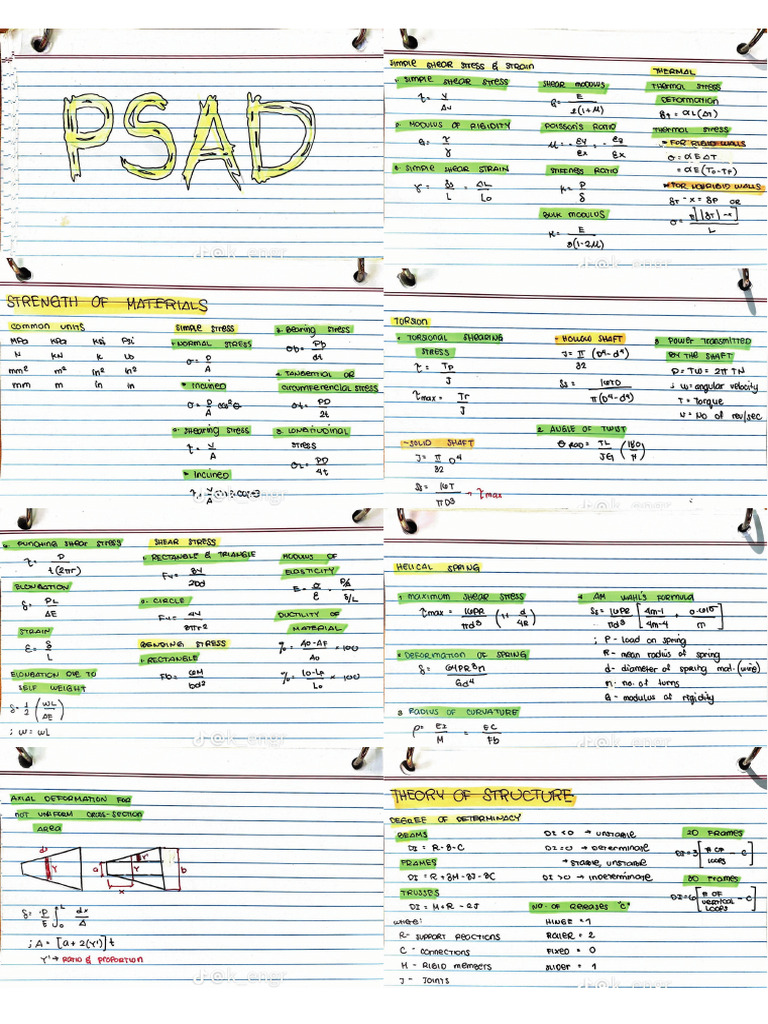 PSAD
@k_engr
SIMPLE SHEAR STRESS & STRAIN
1. SIMPLE SHEAR STRESS
τ = V
Av
2. MODULUS OF RIGIDITY
G = τ
γ
3. SIMPLE SHEAR STRAIN
γ = δs = ΔL
L Lo
SHEAR MODULUS
G = E
2(1+μ)
POISSON'S RATIO
μ = - εy = - εz
εx εx
STIFFNESS RATIO
K = P
δ
BULK MODULUS
K = E
3(1-2μ)
THERMAL
THERMAL STRESS
DEFORMATION
δt = αL(ΔT)
THERMAL STRESS
FOR RIGID WALLS
σ = αEΔT
= αE(To-TF)
FOR NONRIGID WALLS
δT - x = δP OR
σ = E[|δT| - x]
L
@k_engr
STRENGTH OF MATERIALS
COMMON UNITS
MPa KPa Ksi Psi
N KN K Lb
mm² m² in² in²
mm m in in
SIMPLE STRESS
1. NORMAL STRESS
σ = P
A
INCLINED
σ = P cos²θ
A
2. SHEARING STRESS
τ = V
A
INCLINED
3. BEARING STRESS
σb = Pb
dt
4. TANGENTIAL OR
CIRCUMFERENCIAL STRESS
σt = PD
2t
5. LONGITUDINAL
STRESS
σL = PD
4t
@k_engr
TORSION
1. TORSIONAL SHEARING
STRESS
τ = Tρ
J
τmax = Tr
J
- SOLID SHAFT
J = π D⁴
32
Ss = 16T → τmax
πD³
- HOLLOW SHAFT
J = π (D⁴-d⁴)
32
Ss = 16TD
π(D⁴-d⁴)
2. ANGLE OF TWIST
θ RAD = TL (180)
JG π
3. POWER TRANSMITTED
BY THE SHAFT
P = Tω = 2π TN
; ω = angular velocity
T = Torque
N = No of rev/sec
6. PUNCHING SHEAR STRESS
τ = P
t(2πr)
ELONGATION
δ = PL
AE
STRAIN
ε = δ
L
ELONGATION DUE TO
SELF WEIGHT
δ = 1 (WL)
2 AE
; W = wL
SHEAR STRESS
1. RECTANGLE & TRIANGLE
Fv = 3V
2bd
2. CIRCLE
Fv = 4V
3πr²
BENDING STRESS
1. RECTANGLE
Fb = 6M
bd²
MODULUS OF
ELASTICITY
E = σ = P/A
ε δ/L
DUCTILITY OF
MATERIAL
% = Ao-AF × 100
Ao
% = Lo-LF × 100
Lo
@k_engr
HELICAL SPRING
1. MAXIMUM SHEAR STRESS
τmax = 16PR (1 + d )
πd³ 4R
2. DEFORMATION OF SPRING
δ = 64PR³n
Gd⁴
3. RADIUS OF CURVATURE
ρ = EI = EC
M Fb
4. AM WAHL'S FORMULA
Ss = 16PR [4m-1 + 0.615]
πd³ 4m-4 m
; P - LOAD ON SPRING
R - mean radius of spring
d - diameter of spring mat. (wire)
n - no. of turns
G - modulus of rigidity
@k_engr
AXIAL DEFORMATION FOR
NOT UNIFORM CROSS-SECTION
AREA
d Y a Y' b
x
δ = P ∫ L dx
E 0 A
; A = [a + 2(Y')]t
Y' → RATIO & PROPORTION
@k_engr
THEORY OF STRUCTURE
DEGREE OF DETERMINACY
BEAMS
DI = R - 3 - C
FRAMES
DI = R + 3M - 3J - 3C
TRUSSES
DI = M + R - 2J
where:
R - SUPPORT REACTIONS
C - CONNECTIONS
M - RIGID MEMBERS
J - JOINTS
DI < 0 → unstable
DI = 0 → Determinate
→ stable, unstable
DI > 0 → indeterminate
NO. OF RELEASES "C"
HINGE = 1
ROLLER = 2
FIXED = 0
SLIDER = 1
2D FRAMES
DI = 3[# OF LOOPS - C]
3D FRAMES
DI = 6[# OF VERTICAL LOOPS - C]
@k_engr